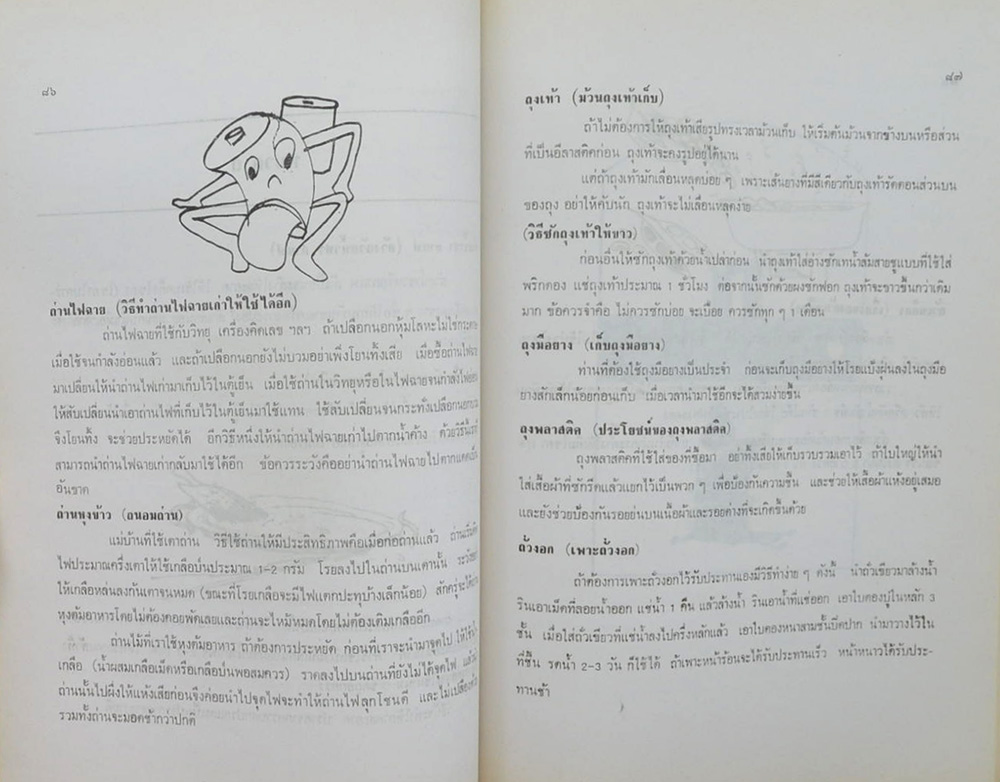 ๘๖
ถ่านไฟฉาย (วิธีทำถ่านไฟฉายเก่าให้ใช้ได้อีก)
ถ่านไฟฉายที่ใช้กับวิทยุ เครื่องคิดเลข ฯลฯ ถ้าเปลือกนอกหุ้มโลหะไม่ใช่กระดาษ
เมื่อใช้จนกำลังอ่อนแล้ว และถ้าเปลือกนอกยังไม่บวมอย่าเพิ่งโยนทิ้งเสีย เมื่อซื้อถ่านไฟฉาย
มาเปลี่ยนให้นำถ่านไฟเก่ามาเก็บไว้ในตู้เย็น เมื่อใช้ถ่านในวิทยุหรือในไฟฉายจนกำลังไฟอ่อน
ให้สับเปลี่ยนนำเอาถ่านไฟที่เก็บไว้ในตู้เย็นมาใช้แทน ใช้สับเปลี่ยนจนกระทั่งเปลือกนอกบวม
จึงโยนทิ้ง จะช่วยประหยัดได้ อีกวิธีหนึ่งให้นำถ่านไฟฉายเก่าไปตากน้ำค้าง ด้วยวิธีนี้เรา
สามารถนำถ่านไฟฉายเก่ากลับมาใช้ได้อีก ข้อควรระวังคืออย่านำถ่านไฟฉายไปตากแดดเป็น
อันขาด
ถ่านหุงข้าว (ถนอมถ่าน)
แม่บ้านที่ใช้เตาถ่าน วิธีใช้ถ่านให้มีประสิทธิภาพคือเมื่อก่อถ่านแล้ว ถ่านเริ่มติด
ไฟประมาณครึ่งเตาให้ใช้เกลือป่นประมาณ 1-2 กรัม โรยลงไปในถ่านบนเตานั้น ระวังอย่า
ให้เกลือหล่นลงก้นเตาจนหมด (ขณะที่โรยเกลือจะมีไฟแตกปะทุบ้างเล็กน้อย) สักครู่จะได้
หุงต้มอาหารโดยไม่ต้องคอยพัดเลยและถ่านจะไหม้หมดโดยไม่ต้องเติมเกลืออีก
ถ่านไม้ที่เราใช้หุงต้มอาหาร ถ้าต้องการประหยัด ก่อนที่เราจะนำมาจุดไป ให้ใช้น้ำ
เกลือ (น้ำผสมเกลือเม็ดหรือเกลือป่นพอสมควร) ราดลงไปบนถ่านที่ยังไม่ได้จุดไฟ แล้วนำ
ถ่านนั้นไปผึ่งให้แห้งเสียก่อนจึงค่อยนำไปจุดไฟจะทำให้ถ่านไฟลุกโชนดี และไม่เปลือง
รวมทั้งถ่านจะมอดช้ากว่าปกติ
๘๗
ถุงเท้า (ม้วนถุงเท้าเก็บ)
ถ้าไม่ต้องการให้ถุงเท้าเสียรูปทรงเวลาม้วนเก็บ ให้เริ่มต้นม้วนจากข้างบนหรือส่วน
ที่เป็นอีลาสติคก่อน ถุงเท้าจะคงรูปอยู่ได้นาน
แต่ถ้าถุงเท้ามักเลื่อนหลุดบ่อย ๆ เพราะเส้นยางที่มีสีเดียวกับถุงเท้ารัดตอนส่วนบน
ของถุง อย่าให้คับนัก ถุงเท้าจะไม่เลื่อนหลุดง่าย
(วิธีซักถุงเท้าให้ขาว)
ก่อนอื่นให้ซักถุงเท้าด้วยน้ำเปล่าก่อน นำถุงเท้าใส่อ่างซักเทน้ำส้มสายชูแบบที่ใช้ใส่
พริกดอง แช่ถุงเท้าประมาณ 1 ชั่วโมง ต่อจากนั้นซักด้วยผงซักฟอก ถุงเท้าจะขาวขึ้นกว่าเดิม
มาก ข้อควรจำคือ ไม่ควรซักบ่อย จะเปื่อย ควรซักทุก ๆ 1 เดือน
ถุงมือยาง (เก็บถุงมือยาง)
ท่านที่ต้องใช้ถุงมือยางเป็นประจำ ก่อนจะเก็บถุงมือยางให้โรยแป้งฝุ่นลงในถุงมือ
ยางสักเล็กน้อยก่อนเก็บ เมื่อเวลานำมาใช้อีกจะได้สวมง่ายขึ้น
ถุงพลาสติค (ประโยชน์ของถุงพลาสติค)
ถุงพลาสติคที่ใช้ใส่ของที่ซื้อมา อย่าทิ้งเสียให้เก็บรวบรวมเอาไว้ ถ้าใบใหญ่ให้นำ
ใส่เสื้อผ้าที่ซักรีดแล้วแยกไว้เป็นพวก ๆ เพื่อป้องกันความชื้น และช่วยให้เสื้อผ้าแห้งอยู่เสมอ
และยังช่วยป้องกันรอยย่นบนเนื้อผ้าและรอยด่างที่จะเกิดขึ้นด้วย
ถั่วงอก (เพาะถั่วงอก)
ถ้าต้องการเพาะถั่วงอกไว้รับประทานเองมีวิธีทำง่าย ๆ ดังนี้ นำถั่วเขียวมาล้างน้ำ
รินเอาเม็ดที่ลอยน้ำออก แช่น้ำ 1 คืน แล้วล้างน้ำ รินเอาน้ำที่แช่ออก เอาใบตองปูในหลัก 3
ชั้น เมื่อใส่ถั่วเขียวที่แช่น้ำลงไปครึ่งหลักแล้ว เอาใบตองหนาสามชั้นปิดปาก นำมาวางไว้ใน
ที่ชื้น รดน้ำ 2-3 วัน ก็ใช้ได้ ถ้าเพาะหน้าร้อนจะได้รับประทานเร็ว หน้าหนาวได้รับประ-
ทานช้า